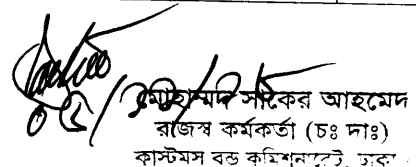 মোহাম্মদ সাকের আহমেদ
রাজস্ব কর্মকর্তা (চঃ দাঃ)
কাস্টমস বন্ড কমিশনারেট, ঢাকা